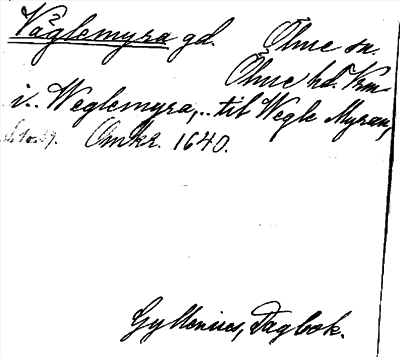 Våglemyra gd. Ölme sn.
Ölme hd. Vrm
i.. Weglemyra,.. til Wegle Myran,
Omkr. 1640.
Gyllenius, Dagbok.